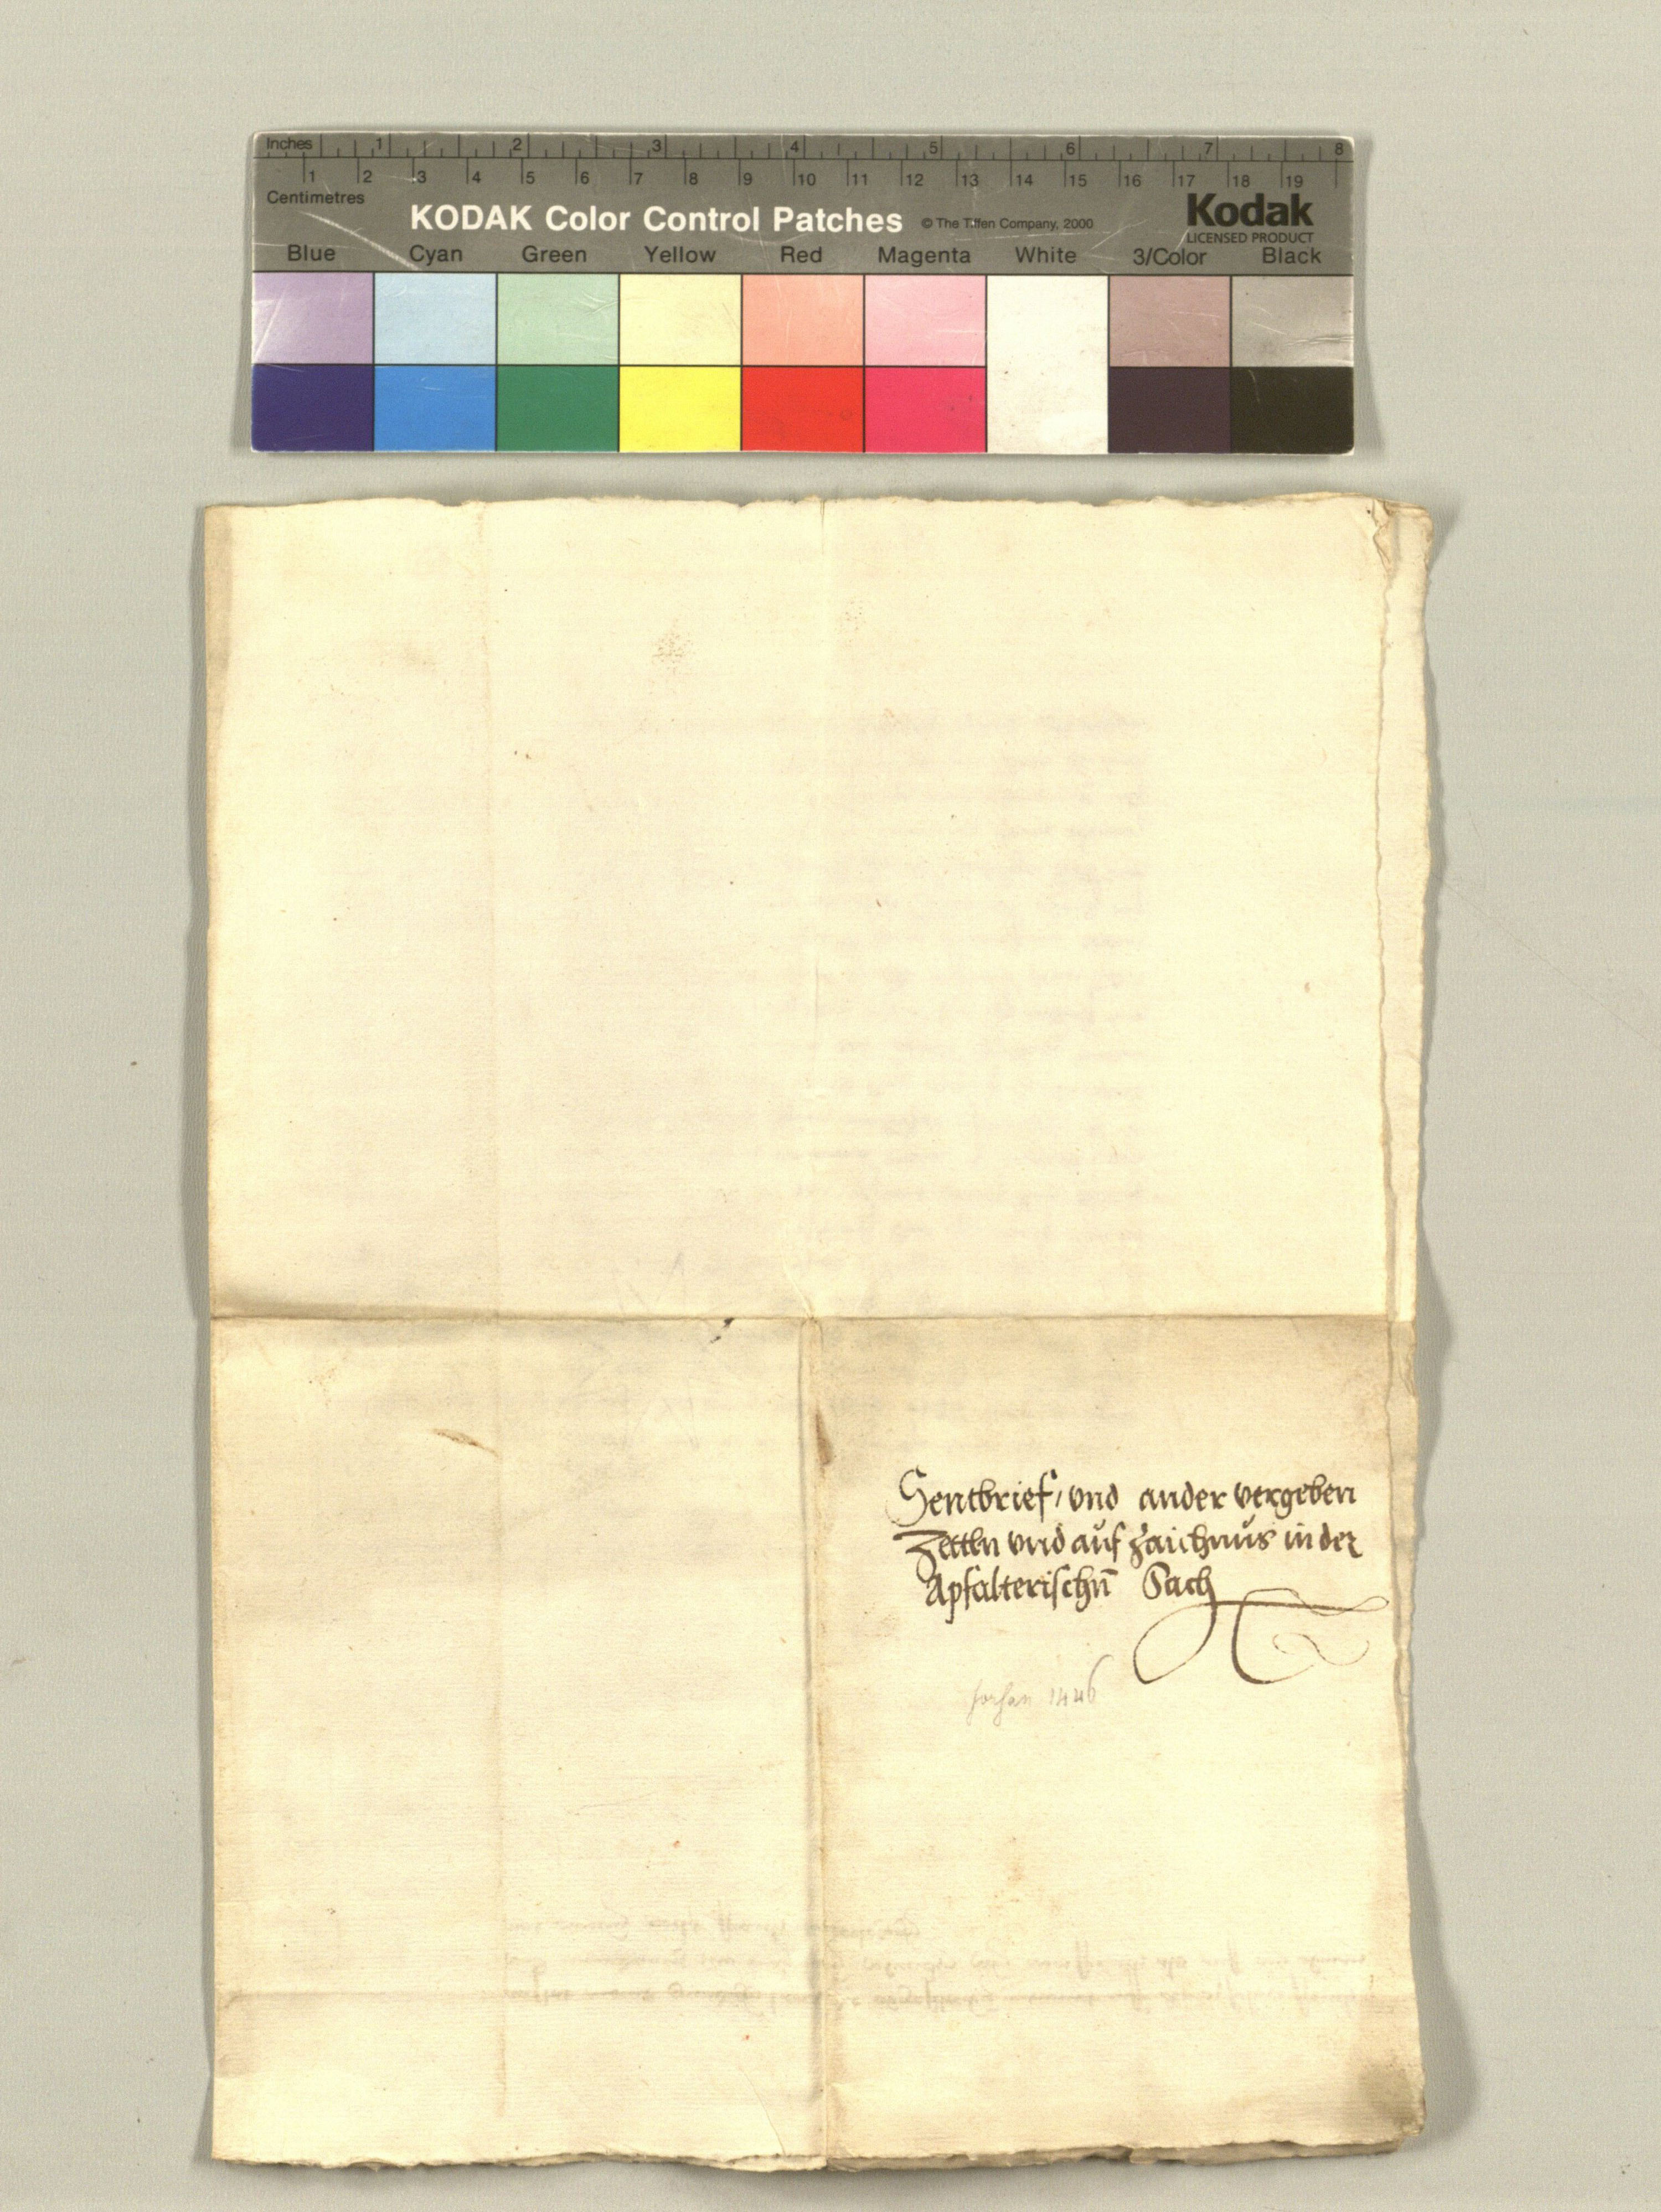 Inches 1 2 3 4 5 6 7 8
1 2 3 4 5 6 7 8 9 10 11 12 13 14 15 16 17 18 19
Centimetres
KODAK Color Control Patches © The Tiffen Company, 2000 Kodak
LICENSED PRODUCT
Blue Cyan Green Yellow Red Magenta White 3/Color Black
Sentbrief / vnd ander vergeben
Zettln vnd aufzaichnus in der
Apfalterischn̄ Sach
1446